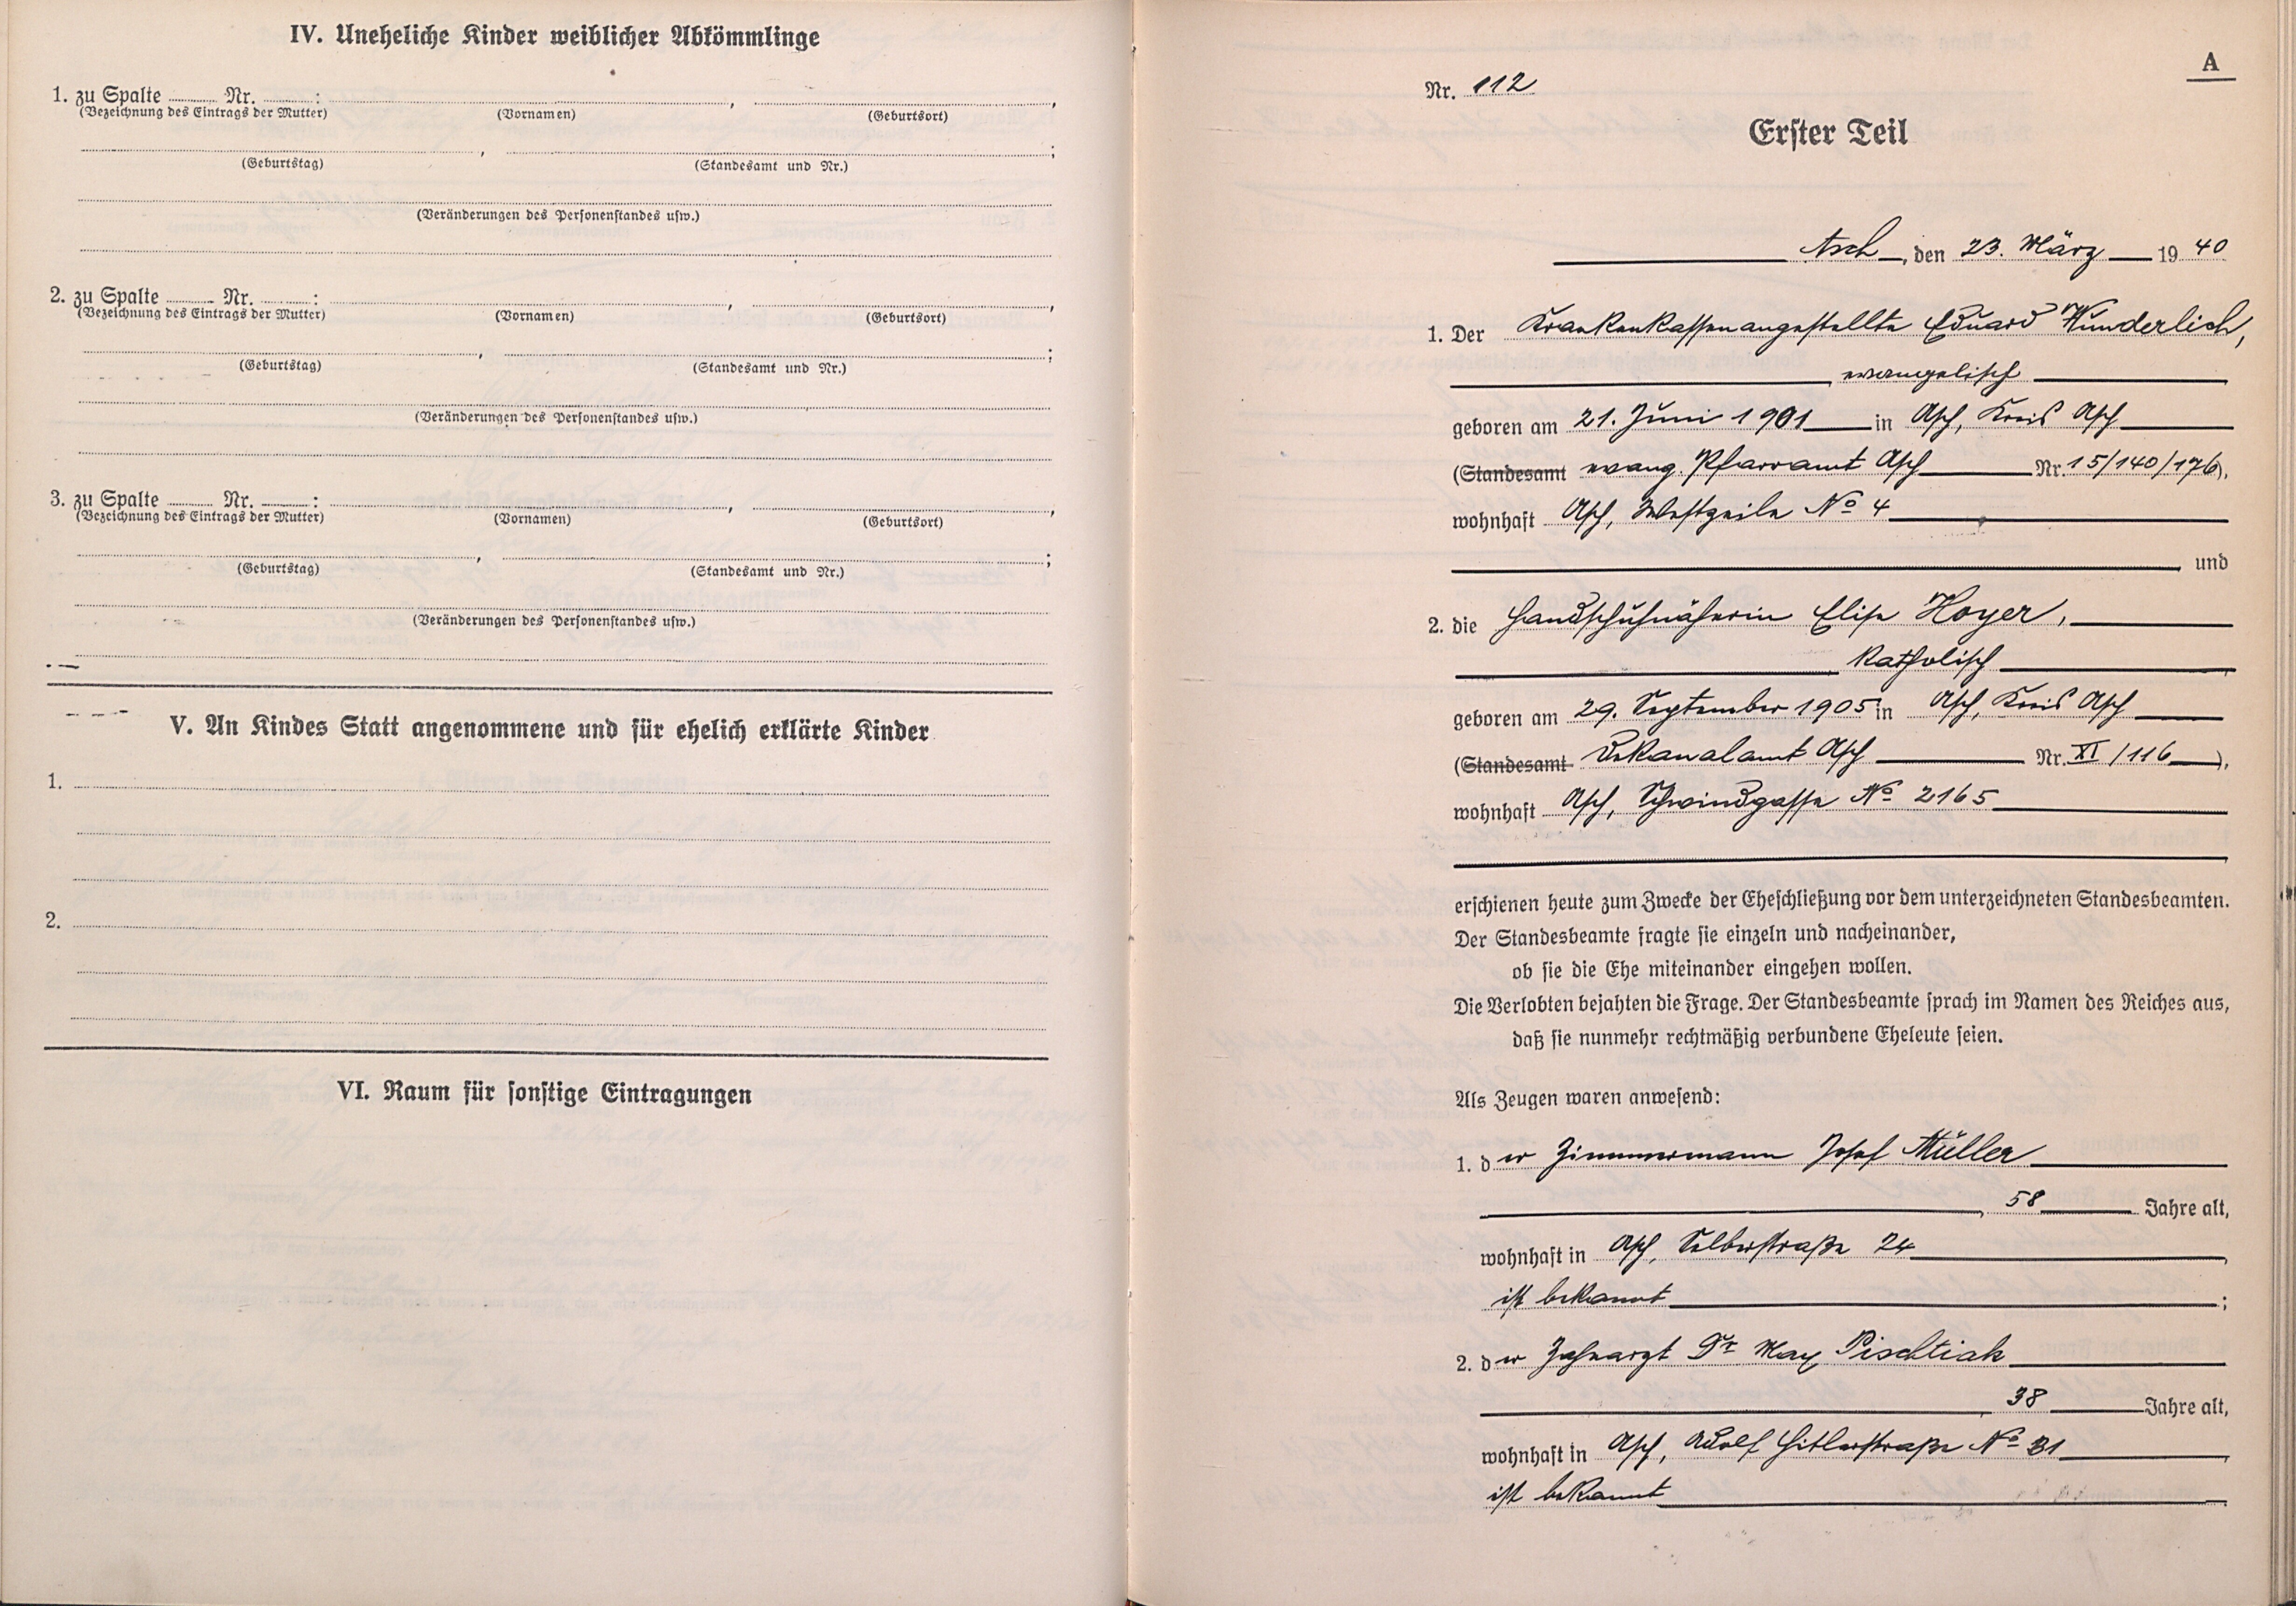 IV. Uneheliche Kinder weiblicher Abkömmlinge
1. zu Spalte ........ Nr. ........: ........, ........,
(Bezeichnung des Eintrags der Mutter) (Vornamen) (Geburtsort)
........, ........;
(Geburtstag) (Standesamt und Nr.)
(Veränderungen des Personenstandes usw.)
2. zu Spalte ........ Nr. ........: ........, ........,
(Bezeichnung des Eintrags der Mutter) (Vornamen) (Geburtsort)
........, ........;
(Geburtstag) (Standesamt und Nr.)
(Veränderungen des Personenstandes usw.)
3. zu Spalte ........ Nr. ........: ........, ........,
(Bezeichnung des Eintrags der Mutter) (Vornamen) (Geburtsort)
........, ........;
(Geburtstag) (Standesamt und Nr.)
(Veränderungen des Personenstandes usw.)
V. An Kindes Statt angenommene und für ehelich erklärte Kinder
1.
2.
VI. Raum für sonstige Eintragungen
A
Nr. 112
Erster Teil
Asch, den 23. März 1940
1. Der Krankenkassenangestellte Eduard Wunderlich,
evangelisch
geboren am 21. Juni 1901 in Asch, Kreis Asch
(Standesamt evang. Pfarramt Asch Nr. 15/140/176),
wohnhaft Asch, Westzeile No 4
und
2. die Handschuhnäherin Elise Hoyer,
katholisch
geboren am 29. September 1905 in Asch, Kreis Asch
(Standesamt Dekanalamt Asch Nr. XI/116),
wohnhaft Asch, Schwindgasse No 2165
erschienen heute zum Zwecke der Eheschließung vor dem unterzeichneten Standesbeamten.
Der Standesbeamte fragte sie einzeln und nacheinander,
ob sie die Ehe miteinander eingehen wollen.
Die Verlobten bejahten die Frage. Der Standesbeamte sprach im Namen des Reiches aus,
daß sie nunmehr rechtmäßig verbundene Eheleute seien.
Als Zeugen waren anwesend:
1. der Zimmermann Josef Müller
, 58 Jahre alt,
wohnhaft in Asch, Selberstraße 24,
ist bekannt;
2. der Zahnarzt Dr Max Pischtiak
, 38 Jahre alt,
wohnhaft in Asch, Adolf Hitlerstraße No 31,
ist bekannt.